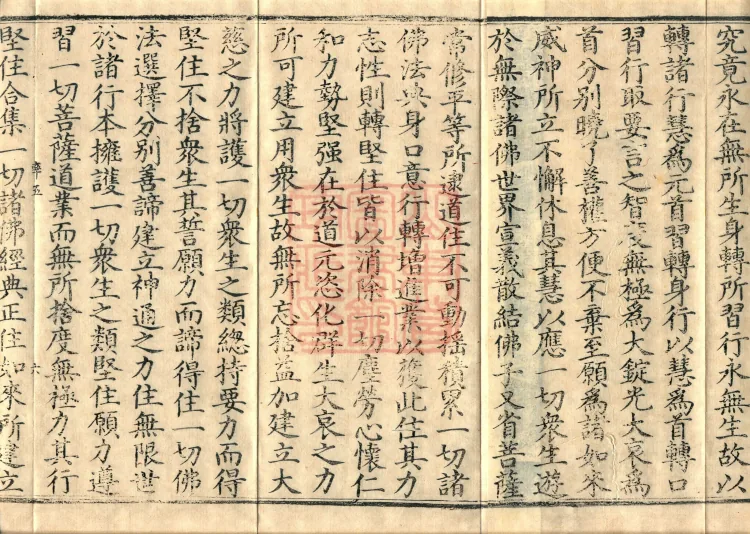 究竟永在無所生身轉所習行永無生故以
轉諸行慧爲元首習轉身行以慧爲首轉口
習行取要言之智度無極爲大錠光大哀爲
首分別曉了善權方便不棄至願爲諸如來
威神所立不懈休息其慧以應一切衆生遊
於無際諸佛世界宣義散結佛子又省菩薩
常修平等所逮道住不可動摇積累一切諸
佛法典身口意行轉增進業以獲此住其力
志性則轉堅住皆以消除一切塵勞心懷仁
和力勢堅强在於道元恣化群生大哀之力
所可建立用衆生故無所忘捨益加建立大
慈之力將護一切衆生之類總持要力而得
堅住不捨衆生其誓願力而諦得住一切佛
法選擇分別善諦建立神通之力住無限世
於諸行本擁護一切衆生之類堅住願力遵
習一切菩薩道業而無所捨度無極力其行
堅住合集一切諸佛經典正住如來所建立
六